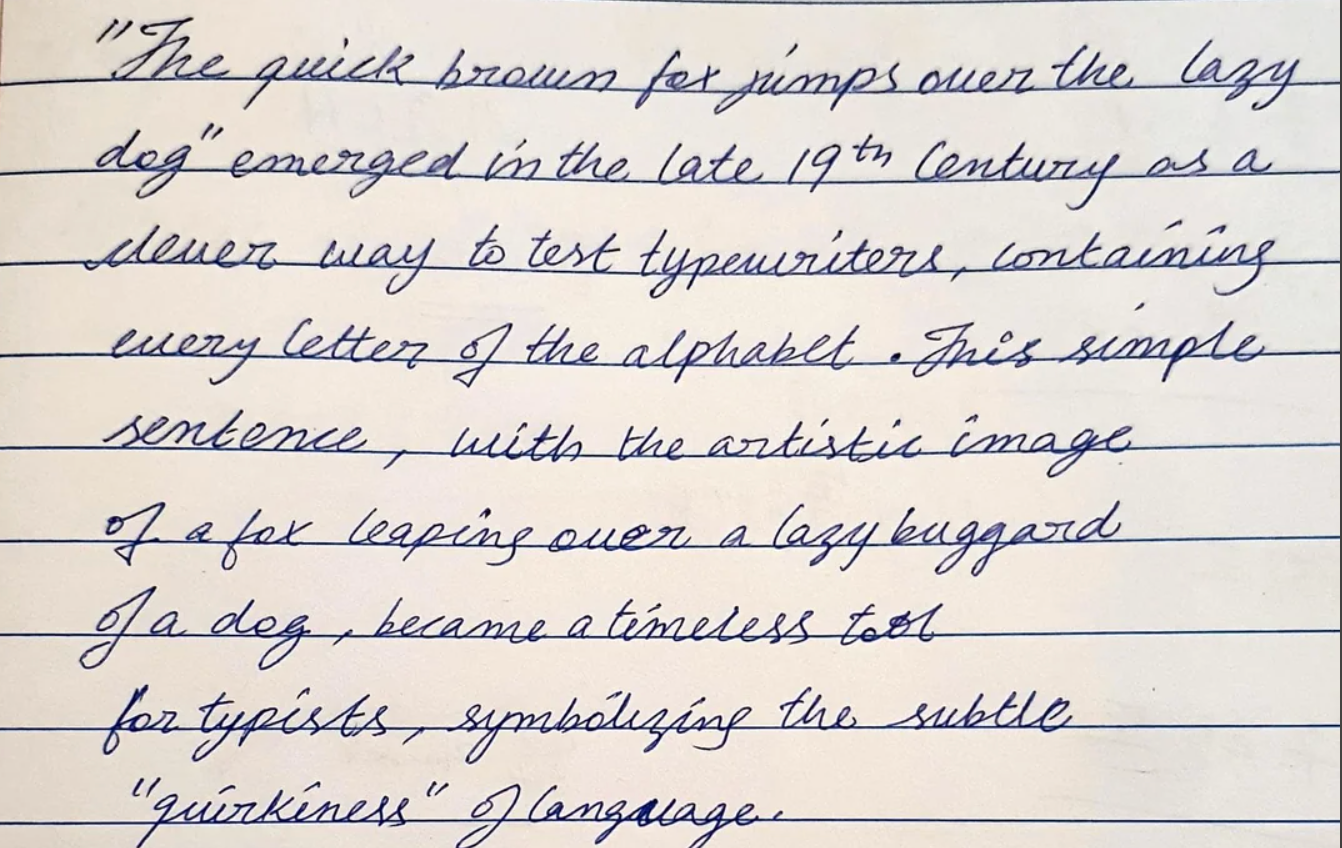 "The quick brown fox jumps over the lazy
dog" emerged in the late 19th Century as a
clever way to test typewriters, containing
every letter of the alphabet. This simple
sentence, with the artistic image
of a fox leaping over a lazy buggard
of a dog, became a timeless tool
for typists, symbolizing the subtle
"quirkiness" of language.